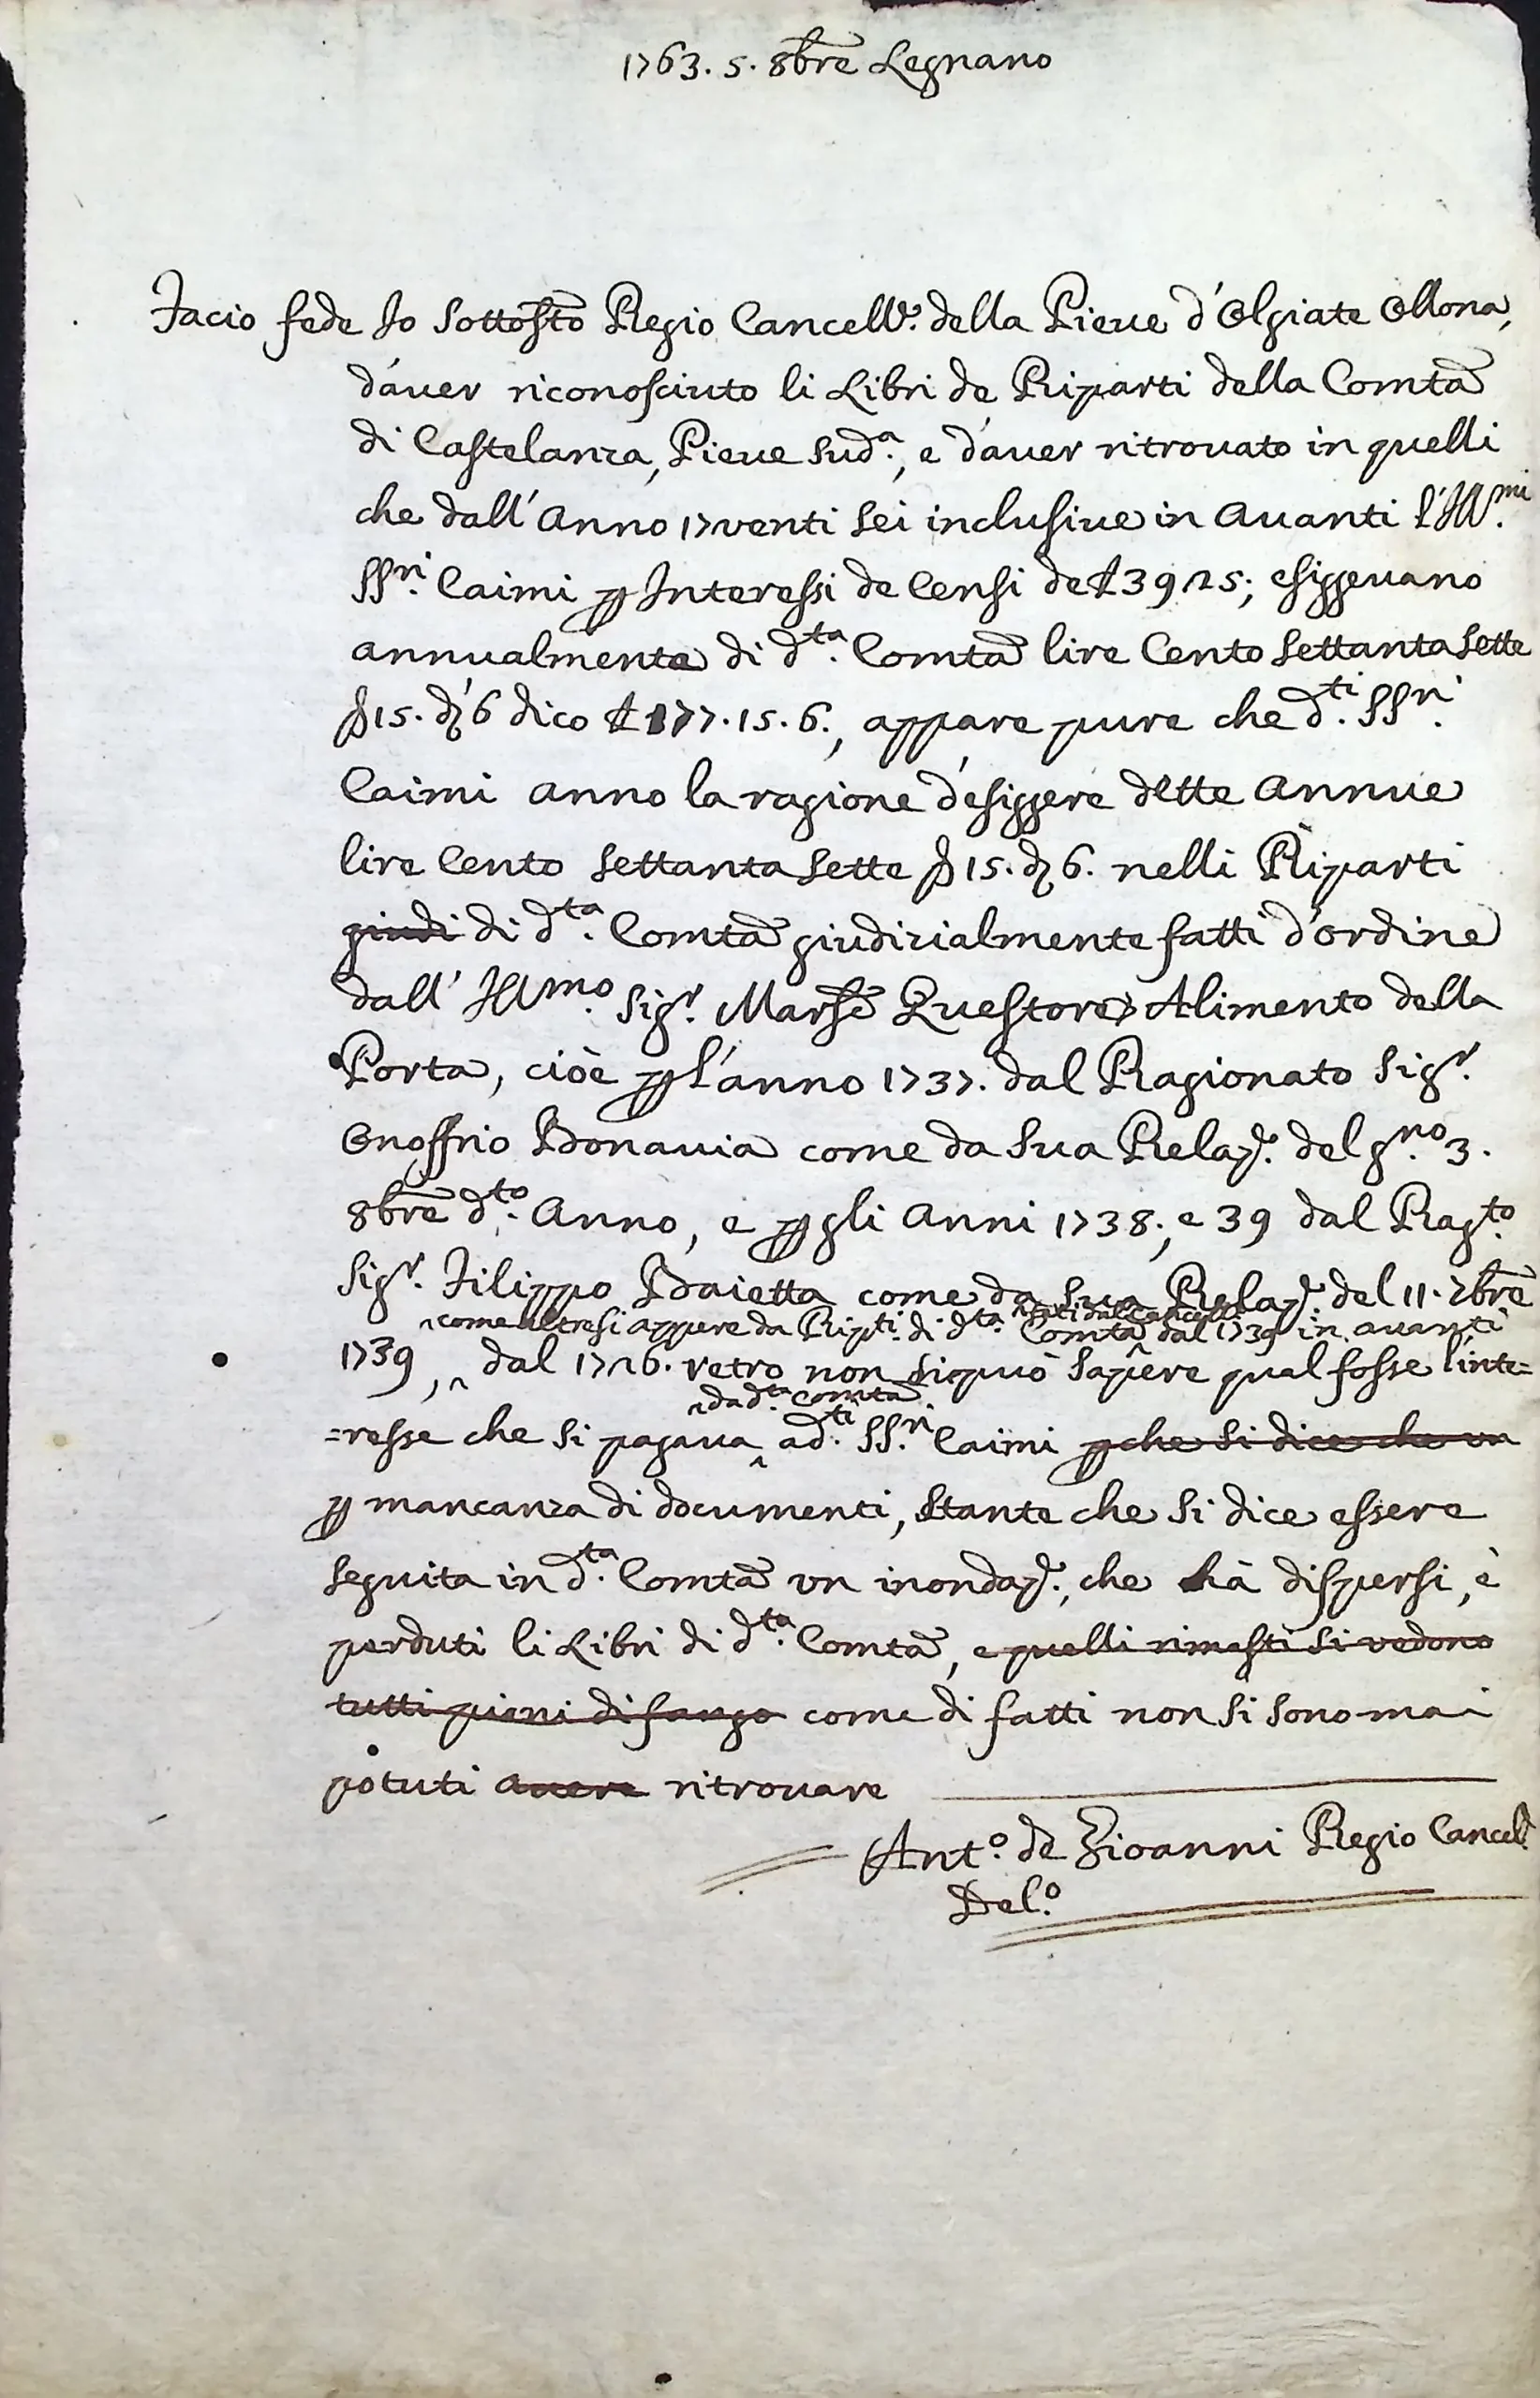 1763. 5. 8bre Legnano
Facio fede Io Sottosto Regio Cancellre. della Pieve d'Olgiate Ollona,
d'aver riconosciuto li Libri de Riparti della Comtà
di Castelanza, Pieve Suda., e d'aver ritrovato in quelli
che dall' Anno 17venti Sei inclusive in Avanti l'Illmi.
SSri. Caimi p Interessi de Censi de £ 3925; esiggevano
annualmente di dta. Comtà lire Cento Settanta Sette
ß 15. d 6 dico £ 177. 15. 6., appare pure che dti. SSri.
Caimi anno la ragione d'esiggere dette Annue
lire Cento Settanta Sette ß 15. d 6. nelli Riparti
giudi di dta. Comtà giudizialmente fatti d'ordine
dall' Illmo. Sigr. Marse Questore Alimento della
Porta, cioè p l'anno 1737. dal Ragionato Sigr.
Onoffrio Bonavia come da Sua Relaze. del gno. 3.
8bre dto. Anno, e p gli Anni 1738; e 39 dal Ragto.
Sigr. Filippo Baietta come da Sua Relaze. del 11. 7bre
fatti dal Cancelle
come altresi appere da Ripti. di dta. Comtà dal 1739 in avanti
1739, dal 1726. retro non si può Sapere qual fosse l'inte=
da dta Comtà
=resse che si pagava a dti. SSri. Caimi pche si dice che un
p mancanza di documenti, Stante che Si dice essere
Seguita in dta. Comtà un inondaze., che hà dispersi, è
perduti li Libri di dta. Comtà, e quelli rimasti Si vedono
tutti pieni di fango come di fatti non Si Sono mai
potuti avere ritrovare
Anto. de Gioanni Regio Cancelre
Delo.